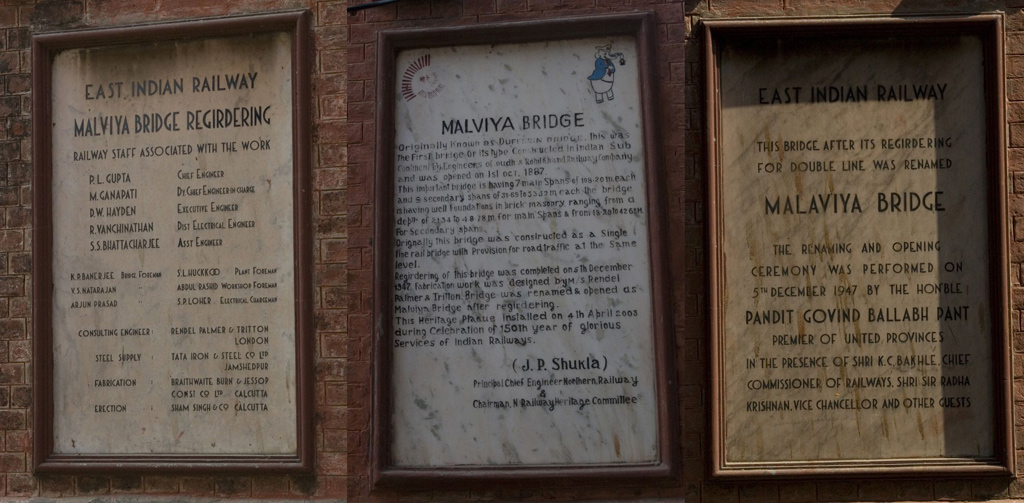 EAST INDIAN RAILWAY
MALVIYA BRIDGE REGIRDERING
RAILWAY STAFF ASSOCIATED WITH THE WORK
R.L. GUPTA CHIEF ENGINEER
M. GANAPATI DY CHIEF ENGINEER-IN-CHARGE
D.W. HAYDEN EXECUTIVE ENGINEER
R. VANCHINATHAN DIST ELECTRICAL ENGINEER
S.S. BHATTACHARJEE ASST ENGINEER
K.P. BANERJEE BRIDGE FOREMAN S.L. HUCKKOO PLANT FOREMAN
V.S. NATARAJAN ABDUL RASHID WORKSHOP FOREMAN
ARJUN PRASAD S.P. LOHER ELECTRICAL CHARGEMAN
CONSULTING ENGINEER RENDEL PALMER & TRITTON
LONDON
STEEL SUPPLY TATA IRON & STEEL CO LTD
JAMSHEDPUR
FABRICATION BRAITHWAITE BURN & JESSOP
CONST CO LTD CALCUTTA
ERECTION SHAM SINGH & CO CALCUTTA
MALVIYA BRIDGE
Originally Known as Dufferin Bridge. This was
The First bridge Of its type Constructed in Indian Sub
Continent By Engineers of oudh & Rohilkhand Railway Company
and was opened on 1st oct. 1887
This important bridge is having 7 main Spans of each
and 9 secondary spans of each the bridge
is having well Foundations in brick masonry ranging from a
depth of for main Spans & from
For Secondary spans.
Orignally this bridge was constructed as a Single
line rail bridge with Provision for road traffic at the Same
level.
Regirdering of this bridge was completed on 5th December
1947. Fabrication work was designed by M/s Rendel
Palmer & Tritton. Bridge was renamed & opened as
Malviya Bridge after regirdering.
This Heritage Plaque Installed on 4th April 2003
during Celebration of 150th year of glorious
Services of Indian Railways.
(J. P. Shukla)
Principal Chief Engineer Northern, Railway
&
Chairman, N Railway Heritage Committee
EAST INDIAN RAILWAY
THIS BRIDGE AFTER ITS REGIRDERING
FOR DOUBLE LINE WAS RENAMED
MALAVIYA BRIDGE
THE RENAMING AND OPENING
CEREMONY WAS PERFORMED ON
5TH DECEMBER 1947 BY THE HON'BLE
PANDIT GOVIND BALLABH PANT
PREMIER OF UNITED PROVINCES
IN THE PRESENCE OF SHRI K.C. BAKHLE, CHIEF
COMMISSIONER OF RAILWAYS, SHRI SIR RADHA
KRISHNAN, VICE CHANCELLOR AND OTHER GUESTS